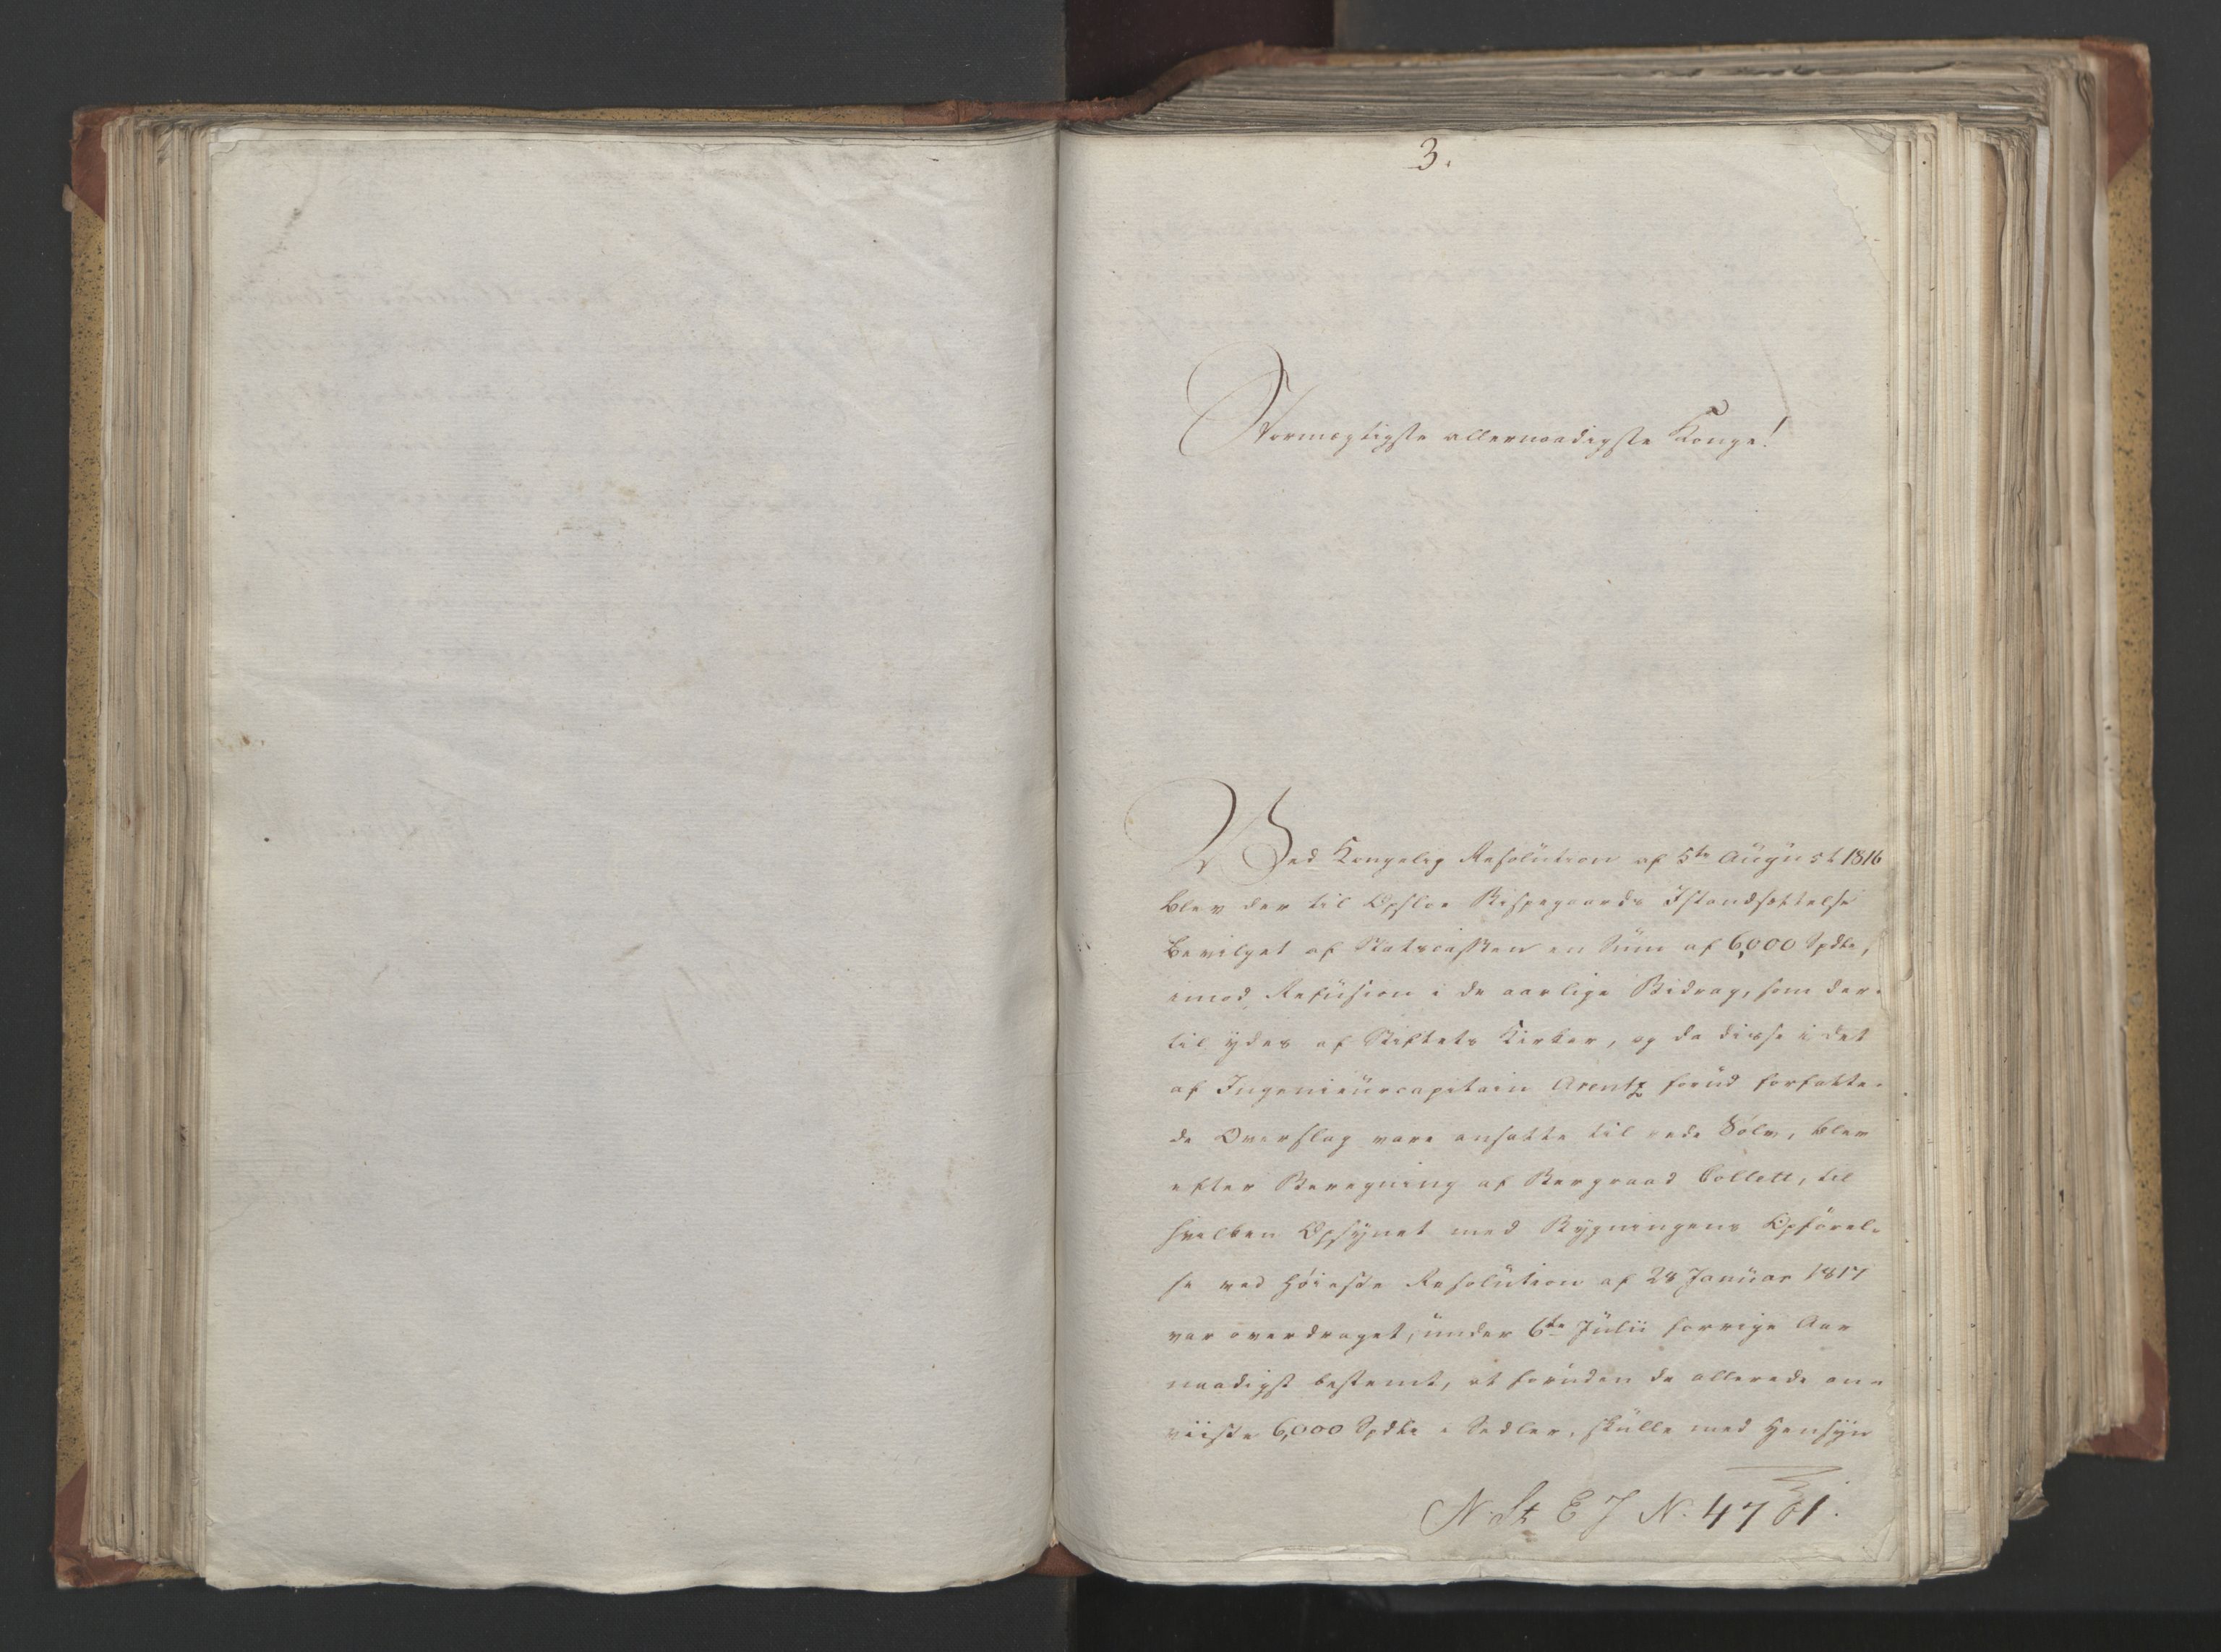 3.
Stormægtigste allernaadigste Konge!
Ved Kongelig Resolution af 5te August 1816
blev der til Opsloe Bispegaards Istandsættelse
bevilget af Statscassen en Sum af 6,000 Spdlr,
imod Refusion i de aarlige Bidrag, som der-
til ydes af Stiftets Kirker, og da disse i det
af Ingenieurcapitain Arentz forud forfatte-
de Overslag vare ansatte til rede Sølv, blev
efter Beregning af Bergraad Collett, til
hvilken Opsynet med Bygningens Opførel-
se ved høieste Resolution af 28 Januar 1817
var overdraget, under 6te Julii forrige Aar
naadigst bestemt, at foruden de allerede an-
viiste 6,000 Spdlr i Sedler, skulle med Hensyn
N. St. E J N. 4761.